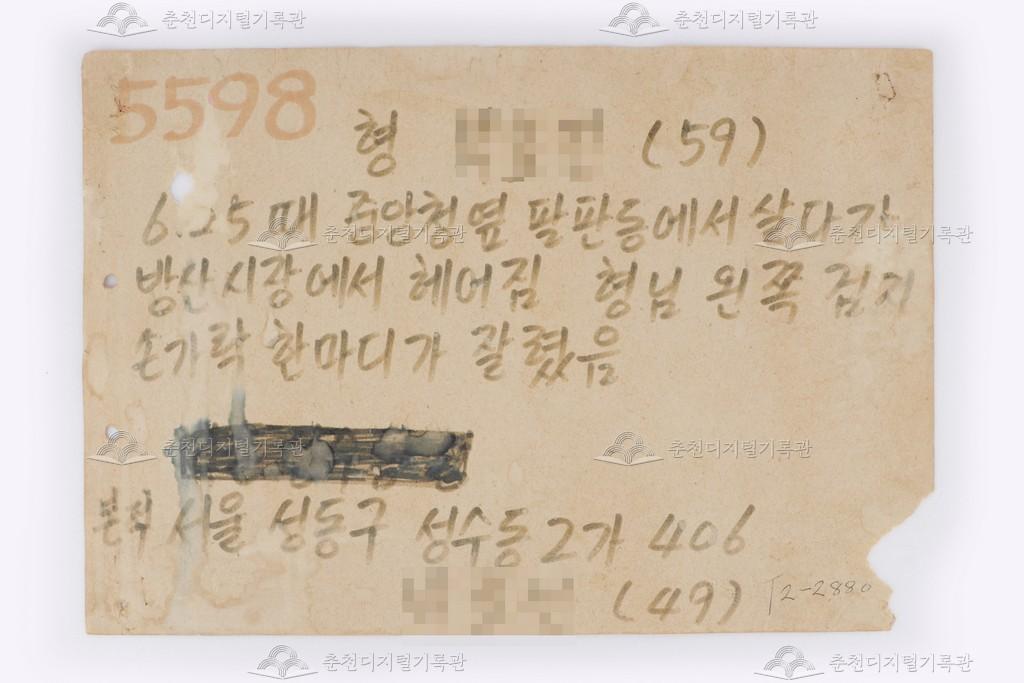 춘천디지털기록관 춘천디지털기록관
5598
형 (59)
6.25때 중앙청옆 팔판동에서 살다가
춘천디지털기록관 춘천디지털기록관
방산시장에서 헤어짐 형님 왼쪽 검지
손가락 한마디가 잘렸음
춘천디지털기록관 춘천디지털기록관
본적 서울 성동구 성수동2가 406
(49) 2-2880
춘천디지털기록관 춘천디지털기록관